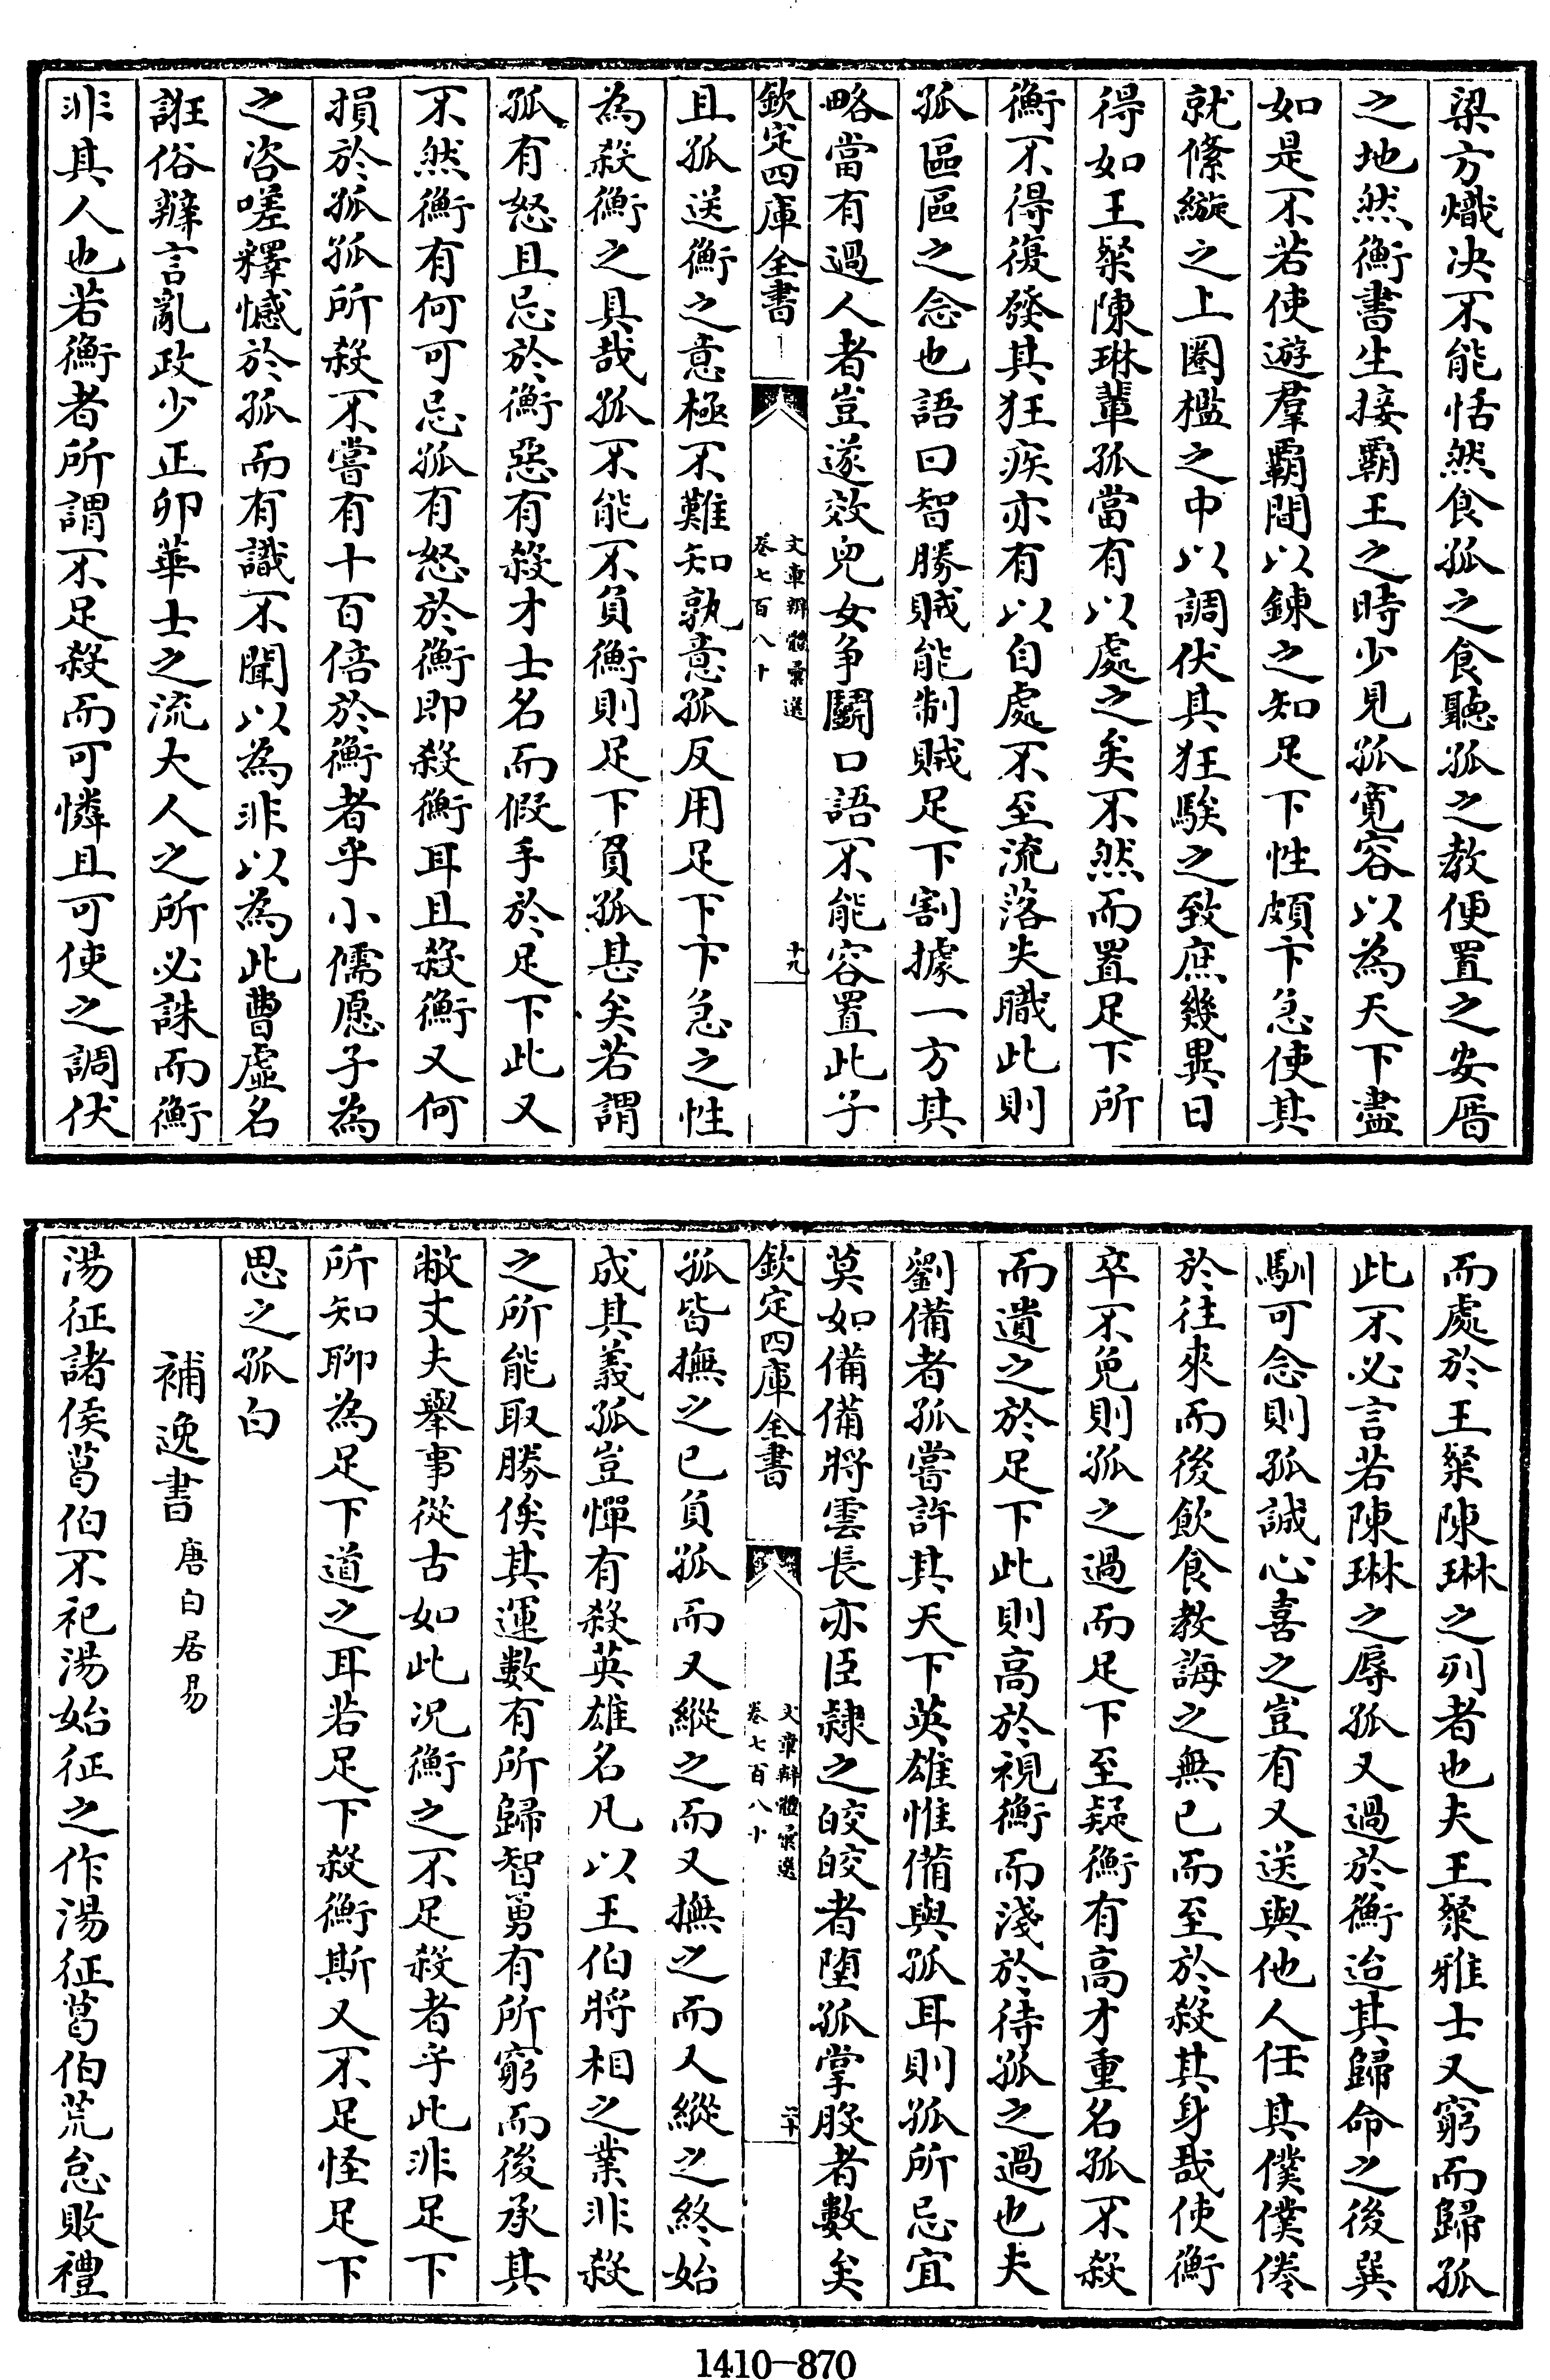 梁方熾決不能恬然食孤之食聽孤之教便置之安厝
之地然衡書生接霸王之時少見孤寬容以為天下盡
如是不若使遊羣霸間以錬之知足下性頗卞急使其
就絛縼之上圈檻之中以調伏其狂騃之致庶幾異日
得如王粲陳琳輩孤當有以處之矣不然而置足下所
衡不得復發其狂疾亦有以自處不至流落失職此則
孤區區之念也語曰智勝賊能制賊足下割據一方其
略當有過人者豈遂效兒女爭鬭口語不能容置此子
欽定四庫全書
文章辨體彙選
卷七百八十
十九
且孤送衡之意極不難知孰意孤反用足下卞急之性
為殺衡之具哉孤不能不負衡則足下負孤甚矣若謂
孤有怒且忌於衡惡有殺才士名而假手於足下此又
不然衡有何可忌孤有怒於衡即殺衡耳且殺衡又何
損於孤孤所殺不嘗有十百倍於衡者乎小儒愿子為
之咨嗟釋憾於孤而有識不聞以為非以為此曹虛名
誑俗辯言亂政少正卯華士之流大人之所必誅而衡
非其人也若衡者所謂不足殺而可憐且可使之調伏
而處於王粲陳琳之列者也夫王粲雅士又窮而歸孤
此不必言若陳琳之辱孤又過於衡迨其歸命之後巽
馴可念則孤誠心喜之豈有又送與他人任其僕僕倦
於往來而後飲食教誨之無已而至於殺其身哉使衡
卒不免則孤之過而足下至疑衡有高才重名孤不殺
而遺之於足下此則高於視衡而淺於待孤之過也夫
劉備者孤嘗許其天下英雄惟備與孤耳則孤所忌宜
莫如備備將雲長亦臣隸之皎皎者墮孤掌股者數矣
欽定四庫全書
文章辨體彙選
卷七百八十
二十
孤皆撫之已負孤而又縱之而又撫之而又縱之終始
成其義孤豈憚有殺英雄名凡以王伯將相之業非殺
之所能取勝俟其運數有所歸智勇有所窮而後承其
敝丈夫舉事從古如此況衡之不足殺者乎此非足下
所知聊為足下道之耳若足下殺衡斯又不足怪足下
思之孤白
補逸書 唐白居易
湯征諸侯葛伯不祀湯始征之作湯征葛伯荒怠敗禮
1410—870